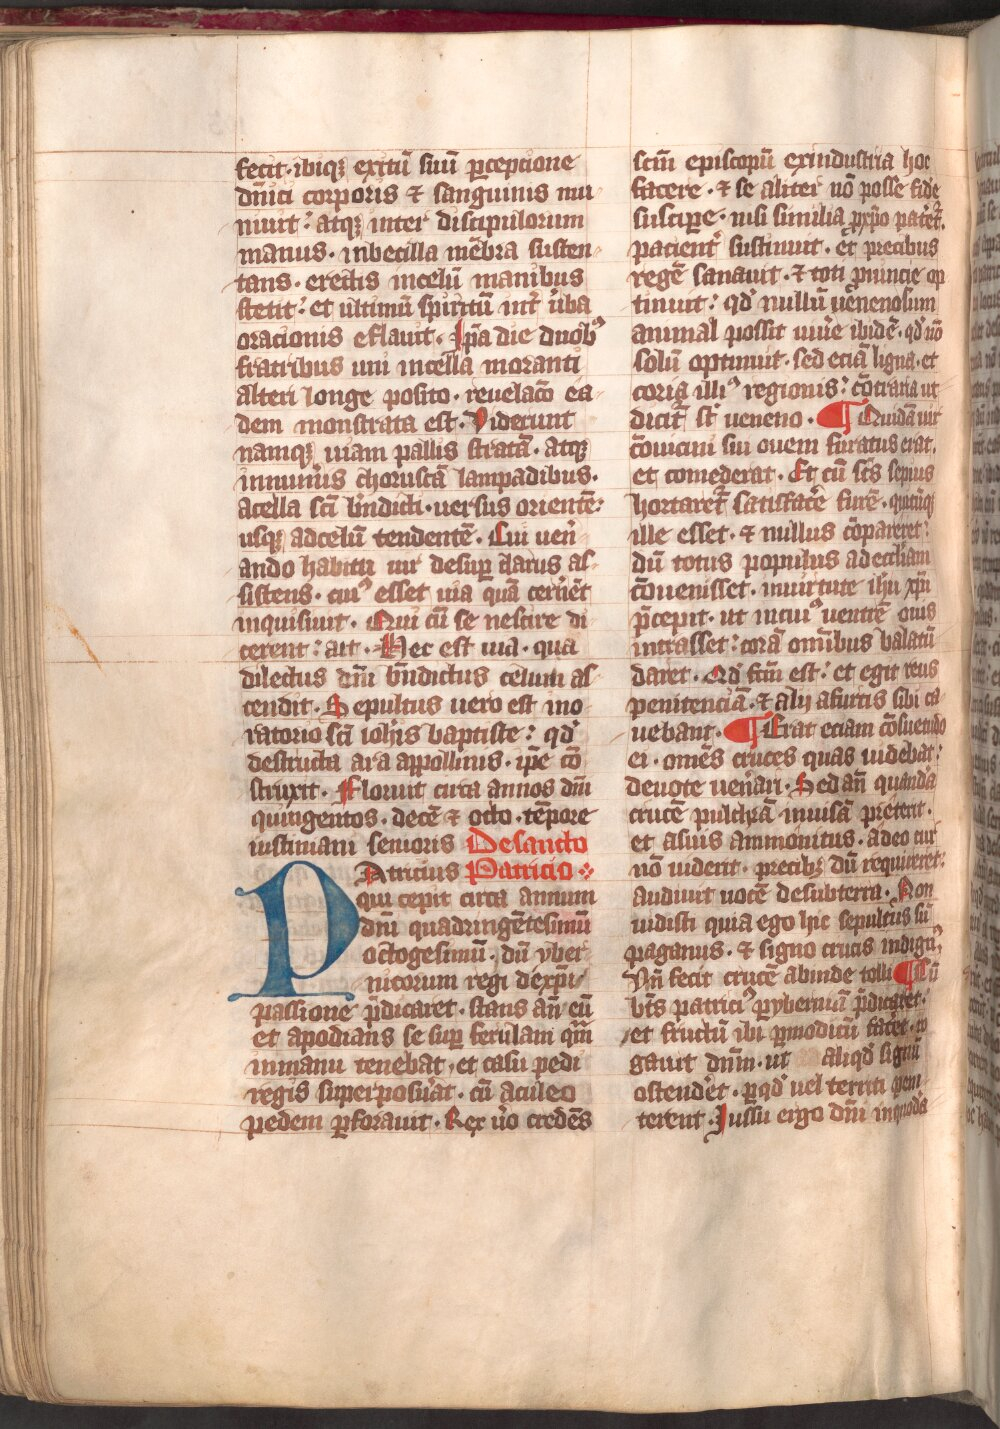 fecit · ibiqꝫ exitū suū ꝑceptione
dn̄ici corporis ⁊ sanguinis mu
niuit : atqꝫ inter discipulorum
manus · inbecilla mēbra susten
tans · erectis incelū manibus
stetit : et ultimū spiritū int̄ u̓ba
orationis eflauit · Ip̄a die duobꝰ
fratribus uni incella moranti
alteri longe posito · reuelac̄o ea
dem monstrata est · Viderunt
namqꝫ uiam pallis stratā · atqꝫ
innum̓is choruscā lampadibus ·
acella sc̄i bn̄dicti · uersus orientē :
usqꝫ adcelū tendentē · Cui uen̓
ando habitu uir desuꝑ clarus as
sistens · cuiꝰ esset uia quā cern̓et
inquisiuit · Qui cū se nescire di
cerent : ait · Hec est uia · qua
dilectus dn̄i bn̄dictus celum as
cendit · Sepultus uero est ino
ratorio sc̄i ioh̄is baptiste : qd̓
destructa ara appollinis · ip̄e cō
struxit · Floruit circa annos dn̄i
quingentos · decē ⁊ octo · tēpore
iustiniani senioris De sancto
PAtricius Patricio
qui cepit circa annum
dn̄i quadringētesimū
octogesimū · dū yber
nicorum regi dexp̄i
passione p̄dicaret · stans an̄ eū
et apodians se suꝑ ferulam qm̄
inmanu tenebat , et casu pedi
regis superposu̓at · cū aculeo
pedem ꝑforauit · Rex u̓o credēs
sc̄m episcopū exindustria hoc
facere · ⁊ se aliter nō posse fidē
susciꝑe · nisi similia ꝓxp̄o pat̓et̄ ·
pacient̓ sustinuit · et precibus
regē sanauit · ⁊ toti ꝓuincie op
tinuit : qd̓ nullū uenenosum
animal possit uiu̓e ibidē · qd̓ nō
solū optinuit · sed eciā ligna · et
coria illiꝰ regionis : cōtraria ut
dicit̄ st̄ ueneno · ¶ Quidā uir
cōuicini sui ouem furatus erat ·
et comederat · Et cū sc̄s sepius
hortaret̄ satisfac̓e furē · quicūqꝫ
ille esset · ⁊ nullus cōpareret :
dū totus populus adeccl̄iam
cōuenisset · inuirtute ih̄u xp̄i
p̄cepit · ut incuiꝰ uentrē ouis
intrasset : corā omībus balatū
daret · Qd̓ fc̄m est : et egit reus
penitenciā · ⁊ alij afurtis sibi ca
uebant · ¶ Erat eciam cōsuetudo
ei · omēs cruces quas uidebat :
deuote uen̓ari · Sed an̄ quandā
crucē pulchrā inuisā pret̓ut ·
et asuis ammonitus · adeo cur
nō uiderit · precibꝫ dū requireret :
audiuit uocē desubterra · Non
uidisti quia ego hic sepultus sū
paganus · ⁊ signo crucis indignꝰ
Vn̄ fecit crucē abinde tolli ¶ Cū
bt̄s patriciꝰ ꝑyberniā p̄dicaret ·
et fructū ibi ꝑmodicū fac̓et · ro
gauit dn̄m · ut aliqd̓ signū
ostend̓et · ꝑqd̓ uel territi peni
terent · Iussu ergo dn̄i inquodā